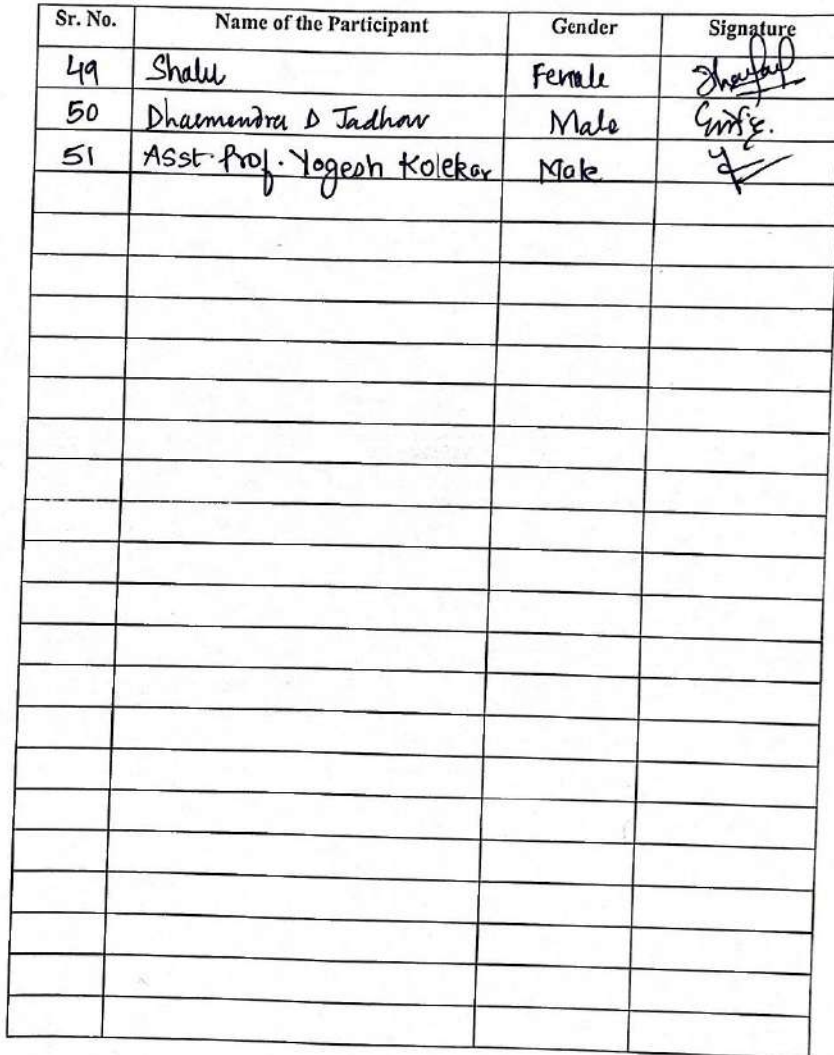 Sr. No. Name of the Participant Gender Signature
49 Shalu Female
50 Dharmendra D Jadhav Male
51 Asst. Prof. Yogesh Kolekar Male